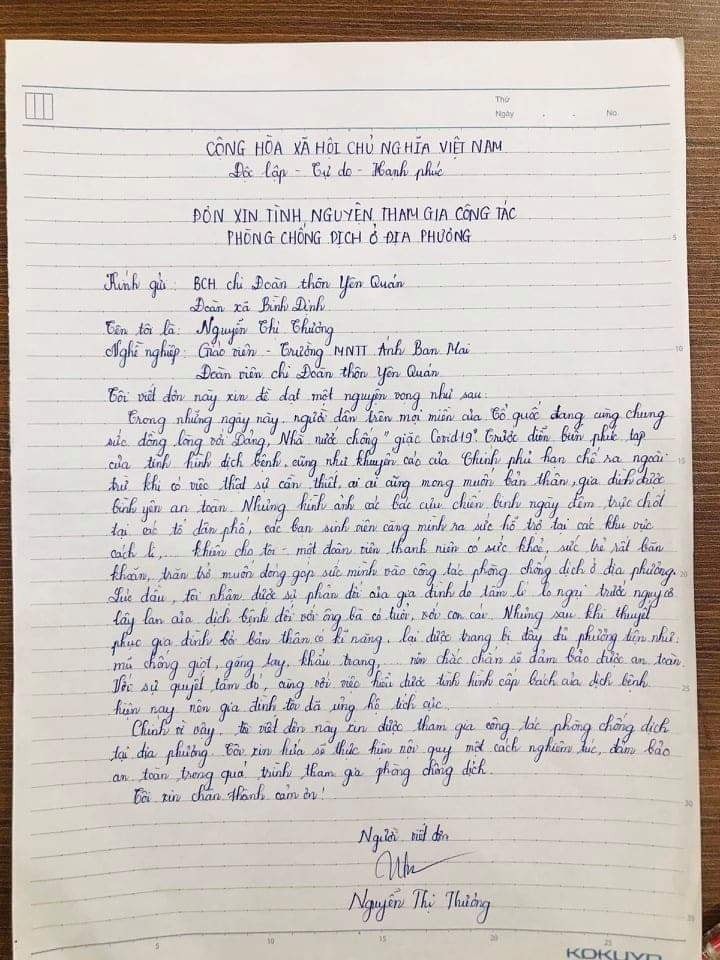 Thứ
Ngày . . No.
CỘNG HÒA XÃ HỘI CHỦ NGHĨA VIỆT NAM
Độc lập - Tự do - Hạnh phúc
ĐƠN XIN TÌNH NGUYỆN THAM GIA CÔNG TÁC
PHÒNG CHỐNG DỊCH Ở ĐỊA PHƯƠNG
Kính gửi: BCH chi Đoàn thôn Yên Quán
Đoàn xã Bình Định
Tên tôi là: Nguyễn Thị Thương
Nghề nghiệp: Giáo viên - Trường MNTT Ánh Ban Mai
Đoàn viên chi Đoàn thôn Yên Quán
Tôi viết đơn này xin đề đạt một nguyện vọng như sau:
Trong những ngày này, người dân trên mọi miền của Tổ quốc đang cùng chung
sức đồng lòng với Đảng, Nhà nước chống "giặc Covid19". Trước diễn biến phức tạp
của tình hình dịch bệnh, cũng như khuyến cáo của Chính phủ hạn chế ra ngoài
trừ khi có việc thật sự cần thiết, ai ai cũng mong muốn bản thân, gia đình được
bình yên an toàn. Nhưng hình ảnh các bác cựu chiến binh ngày đêm trực chốt
tại các tổ dân phố, các bạn sinh viên căng mình ra sức hỗ trợ tại các khu vực
cách li,... khiến cho tôi - một đoàn viên thanh niên có sức khoẻ, sức trẻ rất băn
khoăn, trăn trở muốn đóng góp sức mình vào công tác phòng chống dịch ở địa phương.
Lúc đầu, tôi nhận được sự phản đối của gia đình do tâm lí lo ngại trước nguy cơ
lây lan của dịch bệnh đối với ông bà có tuổi, với con cái. Nhưng sau khi thuyết
phục gia đình bởi bản thân có kĩ năng, lại được trang bị đầy đủ phương tiện như:
mũ chống giọt, găng tay, khẩu trang,... nên chắc chắn sẽ đảm bảo được an toàn.
Với sự quyết tâm đó, cùng với việc hiểu được tình hình cấp bách của dịch bệnh
hiện nay nên gia đình tôi đã ủng hộ tích cực.
Chính vì vậy, tôi viết đơn này xin được tham gia công tác phòng chống dịch
tại địa phương. Tôi xin hứa sẽ thực hiện nội quy một cách nghiêm túc, đảm bảo
an toàn trong quá trình tham gia phòng chống dịch.
Tôi xin chân thành cảm ơn!
Người viết đơn
Nguyễn Thị Thương
5
10
15
20
25
30
35
5 10 15 20 25
KOKUYO